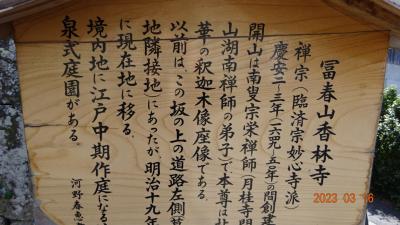 冨春山香林寺
禅宗（臨済宗妙心寺派）
慶安二～三年（一六四九、五〇年）の間創建
開山は南叟宗栄禅師（月桂寺開
山湖南禅師の弟子）で本尊は
華の釈迦木像座像である。
以前は、この坂の上の道路左側
地隣接地にあったが、明治十九年
に現在地に移る。
境内地に江戸中期作庭になる
泉式庭園がある。
河野春恵
2023 03 16